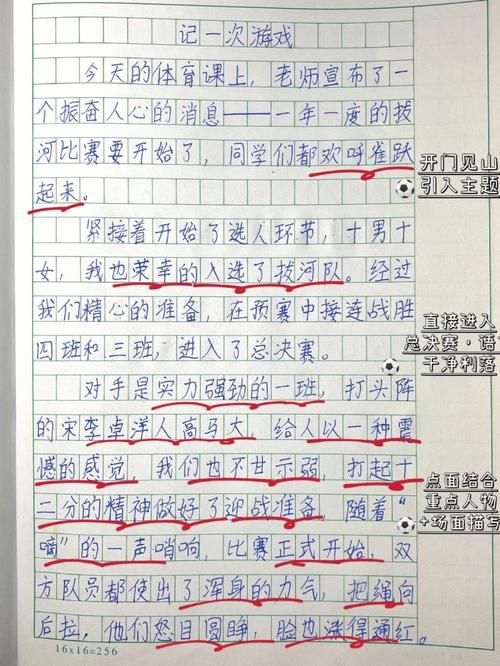 记一次游戏
今天的体育课上，老师宣布了一
个振奋人心的消息——一年一度的拔
河比赛要开始了，同学们都欢呼雀跃
起来。
开门见山
引入主题
紧接着开始了选人环节，十男十
女，我也荣幸的入选了拔河队。经过
我们精心的准备，在预赛中接连战胜
四班和三班，进入了总决赛。
直接进入
总决赛·语
干净利落
对手是实力强劲的一班，打头阵
的宋李卓洋人高马大，给人以一种震
憾的感觉，我们也不甘示弱，打起十
二分的精神做好了迎战准备，随着“
嘀”的一声哨响，比赛正式开始，双
方队员都使出了浑身的力气，把绳向
后拉，他们怒目圆睁，脸也涨得通红。
点面结合
重点人物
+场面描写
16x16=256